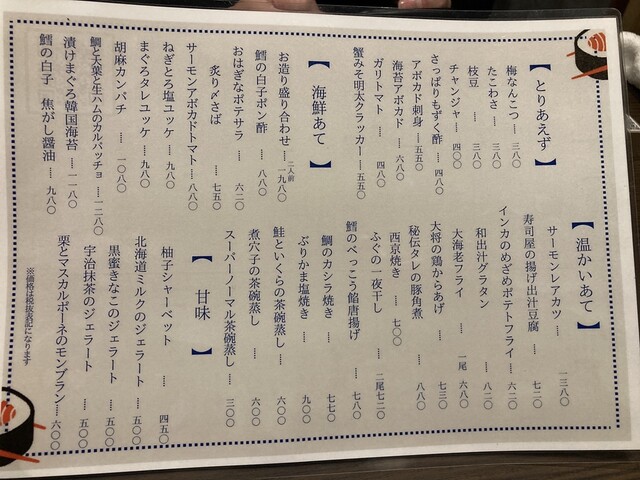 【とりあえず】
梅なんこつ … 三八〇
たこわさ … 三八〇
枝豆 … 三八〇
チャンジャ … 四〇〇
さっぱりもずく酢 … 四八〇
アボカド刺身 … 五五〇
海苔アボカド … 六八〇
ガリトマト … 四八〇
蟹みそ明太クラッカー … 五五〇
【海鮮あて】
お造り盛り合わせ … 二人前 一九八〇
鱈の白子ポン酢 … 八八〇
おはぎなポテサラ … 六二〇
炙り〆さば … 七五〇
サーモンアボカドトマト … 八八〇
ねぎとろ塩ユッケ … 九八〇
まぐろタレユッケ … 九八〇
胡麻カンパチ … 一〇八〇
鯛と大葉と生ハムのカルパッチョ … 一二八〇
漬けまぐろ韓国海苔 … 一一八〇
鱈の白子 焦がし醤油 … 九八〇
【温かいあて】
サーモンレアカツ … 一三八〇
寿司屋の揚げ出汁豆腐 … 七二〇
インカのめざめポテトフライ … 六二〇
和出汁グラタン … 八二〇
大海老フライ … 一尾 六八〇
大将の鶏からあげ … 七三〇
秘伝タレの豚角煮 … 八八〇
西京焼き … 七〇〇
ふぐの一夜干し … 二尾七二〇
鱈のべっこう餡唐揚げ … 七八〇
鯛のカシラ焼き … 七七〇
ぶりかま塩焼き … 九〇〇
鮭といくらの茶碗蒸し … 六〇〇
煮穴子の茶碗蒸し … 六〇〇
スーパーノーマル茶碗蒸し … 三〇〇
【甘味】
柚子シャーベット … 四五〇
北海道ミルクのジェラート … 五〇〇
黒蜜きなこのジェラート … 五〇〇
宇治抹茶のジェラート … 五〇〇
栗とマスカルポーネのモンブラン … 六〇〇
※価格は税抜表記になります